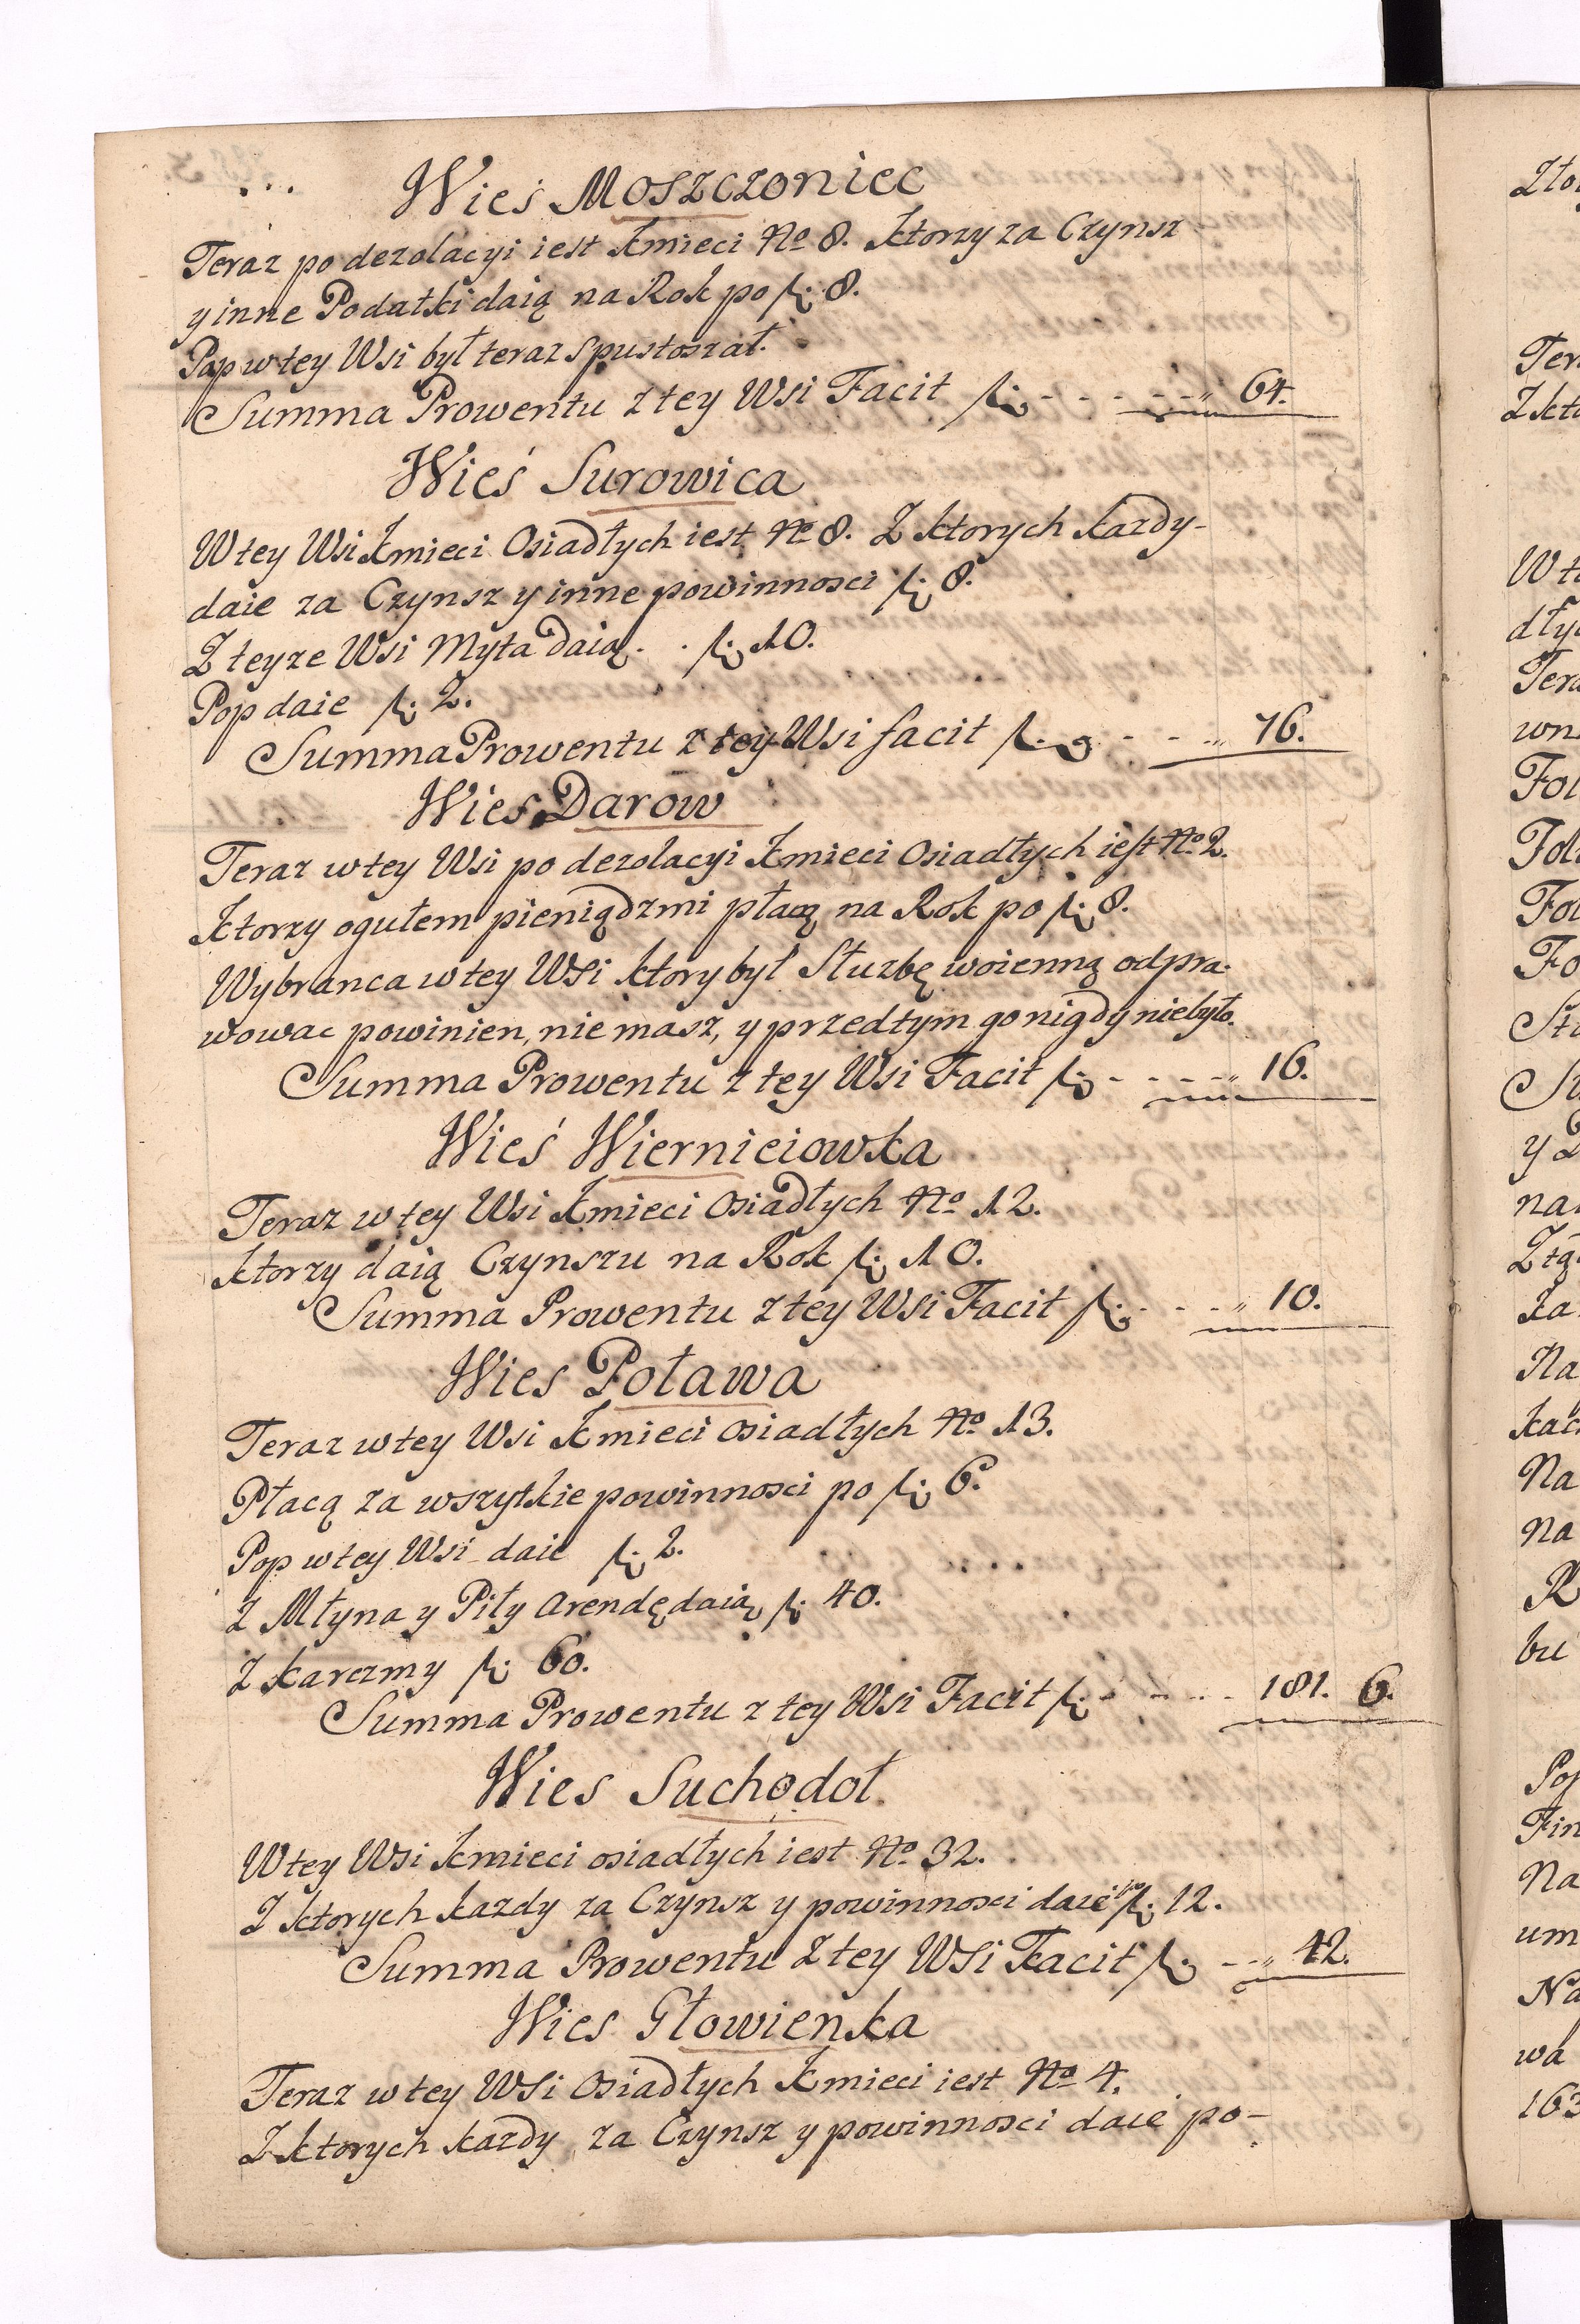 Wieś Moszczoniec
Teraz po dezolacyi iest Kmieci No 8. Ktorzy za Czynsz
y inne Podatki daią na Rok po fl: 8.
Pop w tey Wsi był teraz spustoszał.
Summa Prowentu z tey Wsi Facit fl: - - - - - „ 64.
Wieś Surowica
W tey Wsi Kmieci Osiadłych iest No 8. Z ktorych kazdy-
daie za Czynsz y inne powinnosci fl: 8.
Z teyze Wsi Myta daią . . fl: 10.
Pop daie fl: 2.
Summa Prowentu z tey Wsi facit fl: - - - „ 76.
Wies Darow
Teraz w tey Wsi po dezolacyi Kmieci Osiadłych iest No 2.
Ktorzy ogułem pieniądzmi płacą na Rok po fl: 8.
Wybranca w tey Wsi ktory był Słuzbę woienną odpra-
wowac powinien, nie masz, y przedtym go nigdy niebyło.
Summa Prowentu z tey Wsi Facit fl: - - - - „ 16.
Wieś Wierniciowka
Teraz w tey Wsi Kmieci Osiadłych No 12.
Ktorzy daią Czynszu na Rok fl: 10.
Summa Prowentu z tey Wsi Facit fl: - - - „ 10.
Wies Poława
Teraz w tey Wsi Kmieci osiadłych No 13.
Płacą za wszytkie powinnosci po fl: 6.
Pop w tey Wsi daie fl: 2.
Z Młyna y Piły Arendę daią fl: 40.
Z Karczmy fl: 60.
Summa Prowentu z tey Wsi Facit fl: - - - - 181. 6.
Wies Suchodoł.
W tey Wsi Kmieci osiadłych iest No 32.
Z ktorych kazdy za Czynsz y powinnosci daie po fl: 12.
Summa Prowentu z tey Wsi Facit fl: - - „ 42.
Wies Głowienka
Teraz w tey Wsi Osiadłych Kmieci iest No 4.
Z ktorych kazdy za Czynsz y powinnosci daie po-